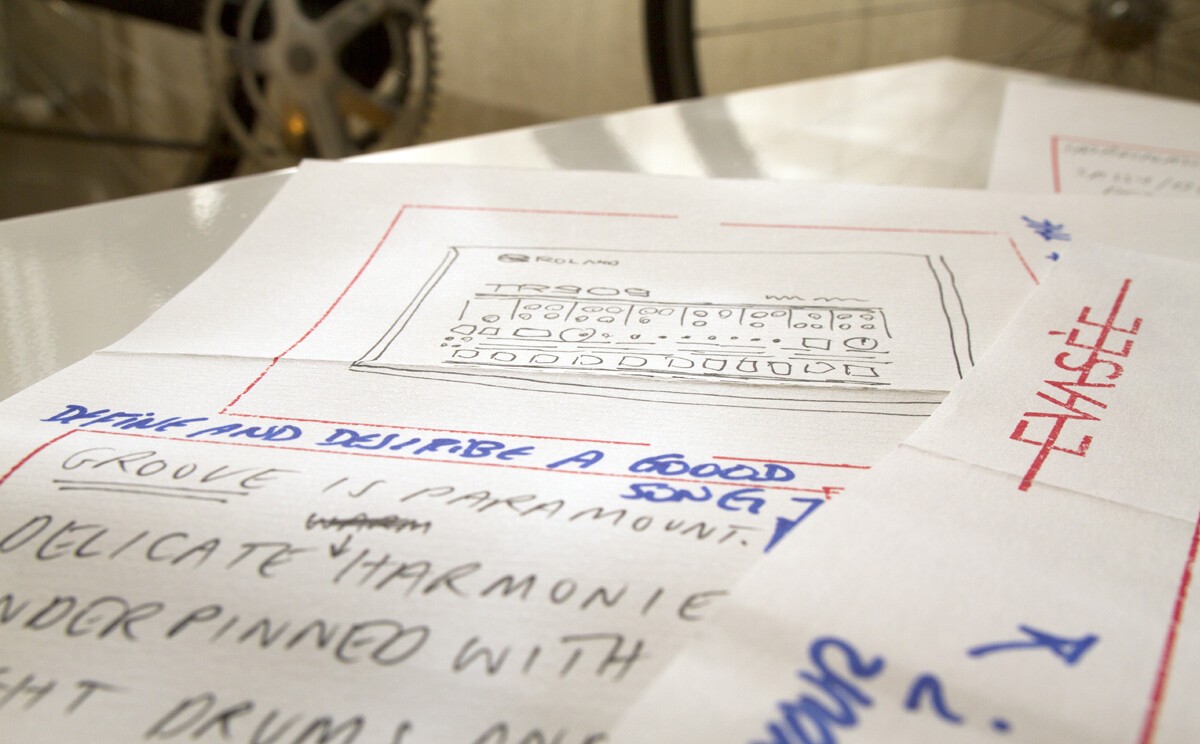 ROLAND
TR909
DEFINE AND DESCRIBE A GOOOD
SONG
GROOVE IS PARAMOUNT.
WARM
DELICATE HARMONIE
NDERPINNED WITH
HT DRUMS AND
EVASÉE
YOUR ?